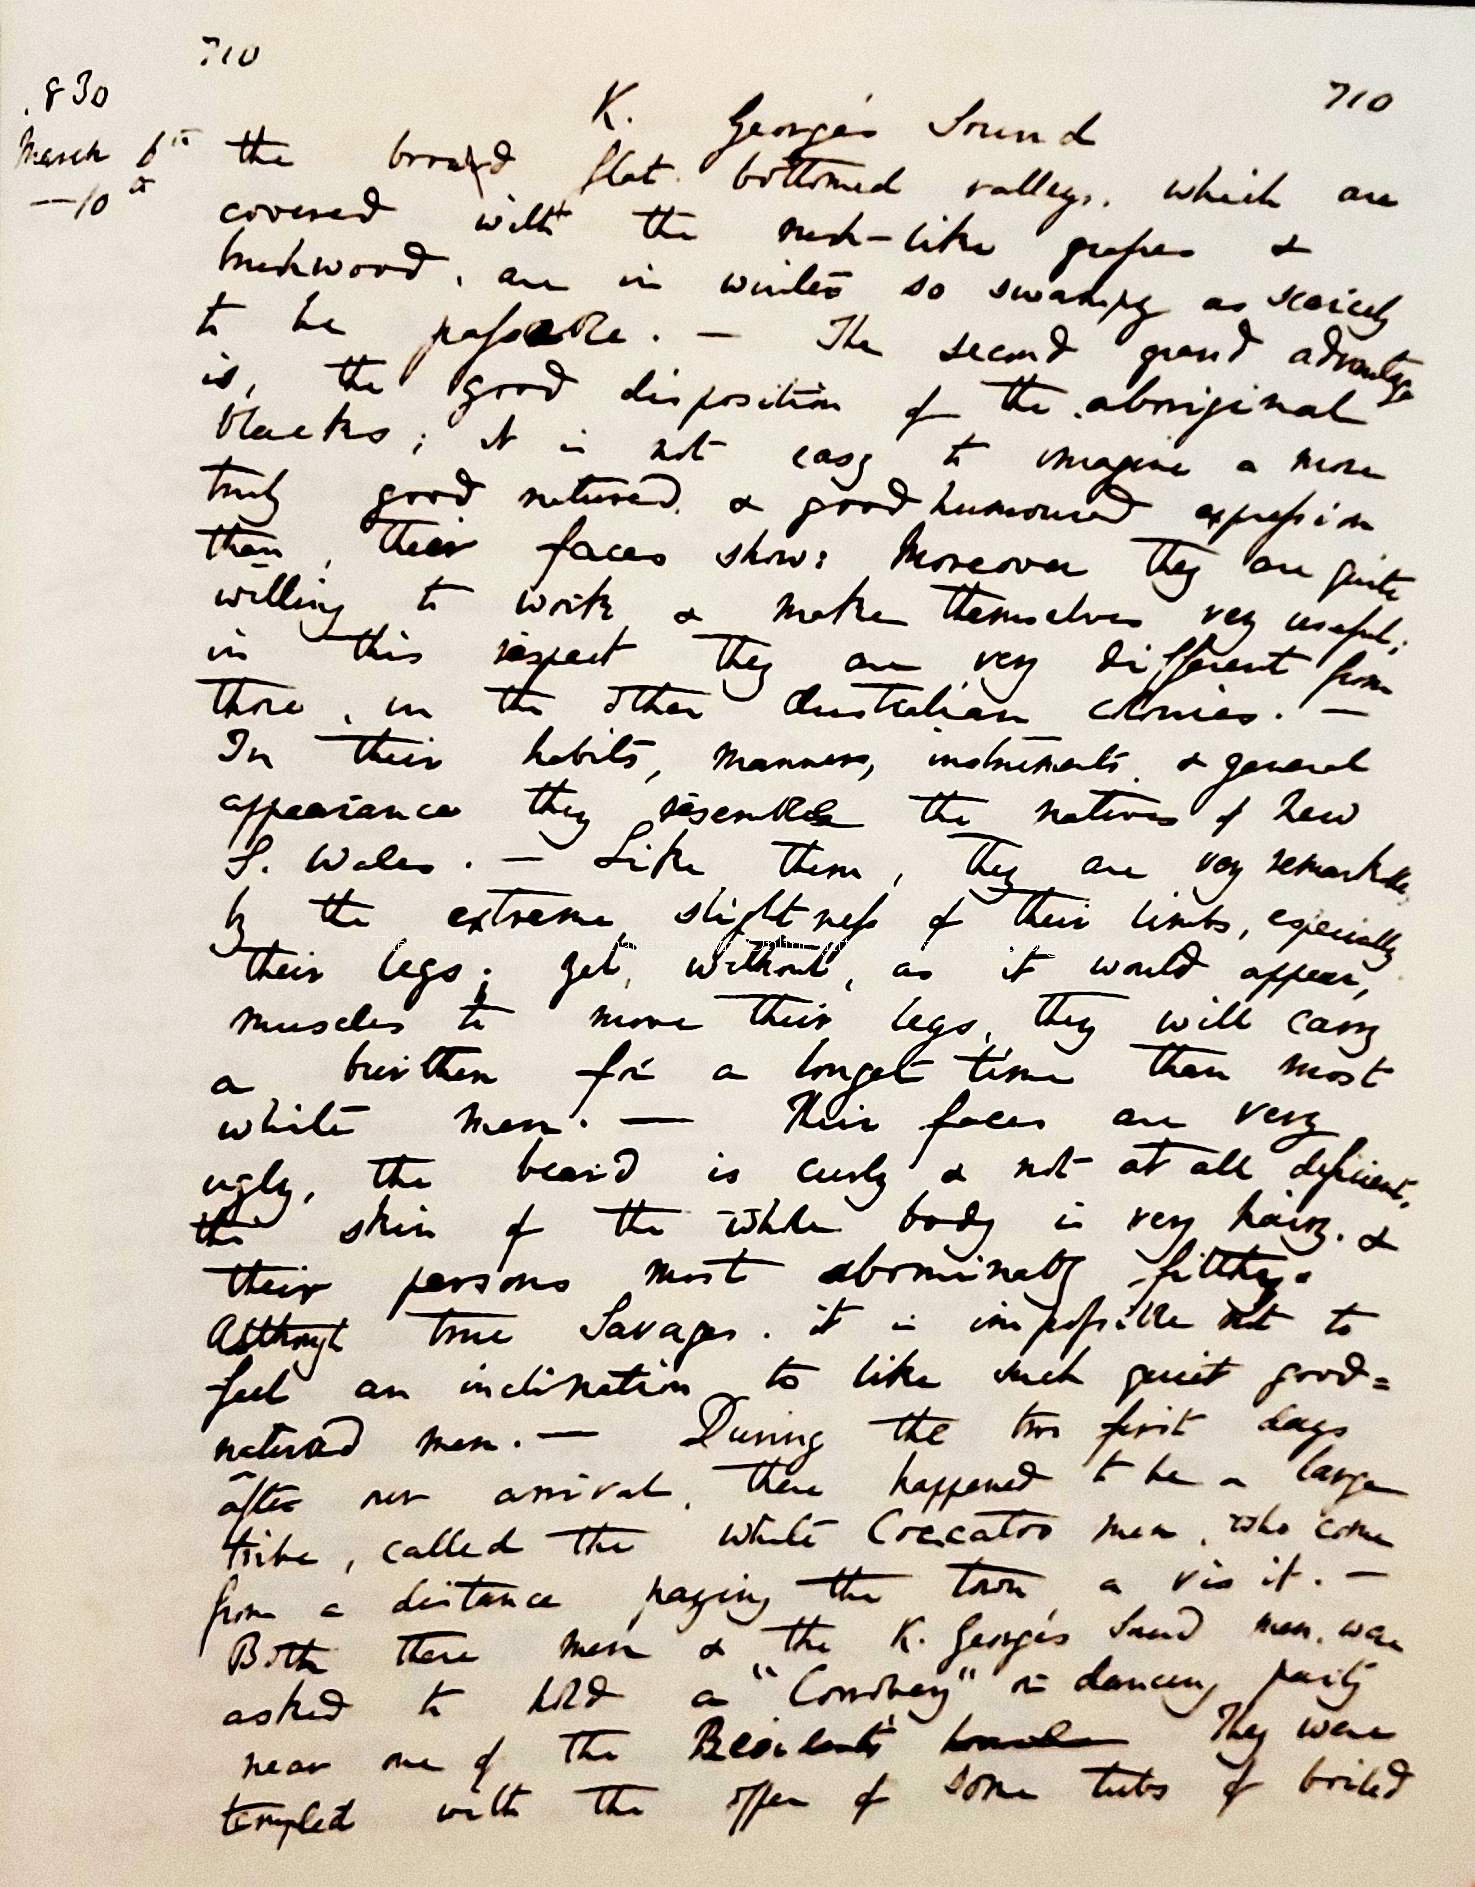 710
710
.830
March 6th
—10th
K. George's Sound
the broad flat bottomed valleys, which are
covered with the rush-like grasses &
brushwood, are in winter so swampy as scarcely
to be passable. — The second grand advantage
is, the good disposition of the aboriginal
blacks; it is not easy to imagine a more
truly good natured & good humoured expression
than, their faces show: Moreover they are quite
willing to work & make themselves very useful;
in this respect they are very different from
those, in the other Australian colonies. —
In their habits, manners, instruments, & general
appearance they resemble the natives of New
S. Wales. — Like them, they are very remarkable,
by the extreme slightness of their limbs, especially
their legs; yet, without, as it would appear,
muscles to move their legs, they will carry
a burthen for a longer time than most
white men. — Their faces are very
ugly, the beard is curly & not at all deficient,
the skin of the whole body is very hairy, &
their persons most abominably filthy.
Although true Savages, it is impossible not to
feel an inclination to like such quiet good=
natured men. — During the two first days
after our arrival, there happened to be a large
tribe, called the white Coccatoo men, who come
from a distance paying the town a visit. —
Both these men & the K. George's Sound men, were
asked to hold a "Corrobery" or dancing party
near one of the Residents' houses They were
tempted with the offer of some tubs of boiled